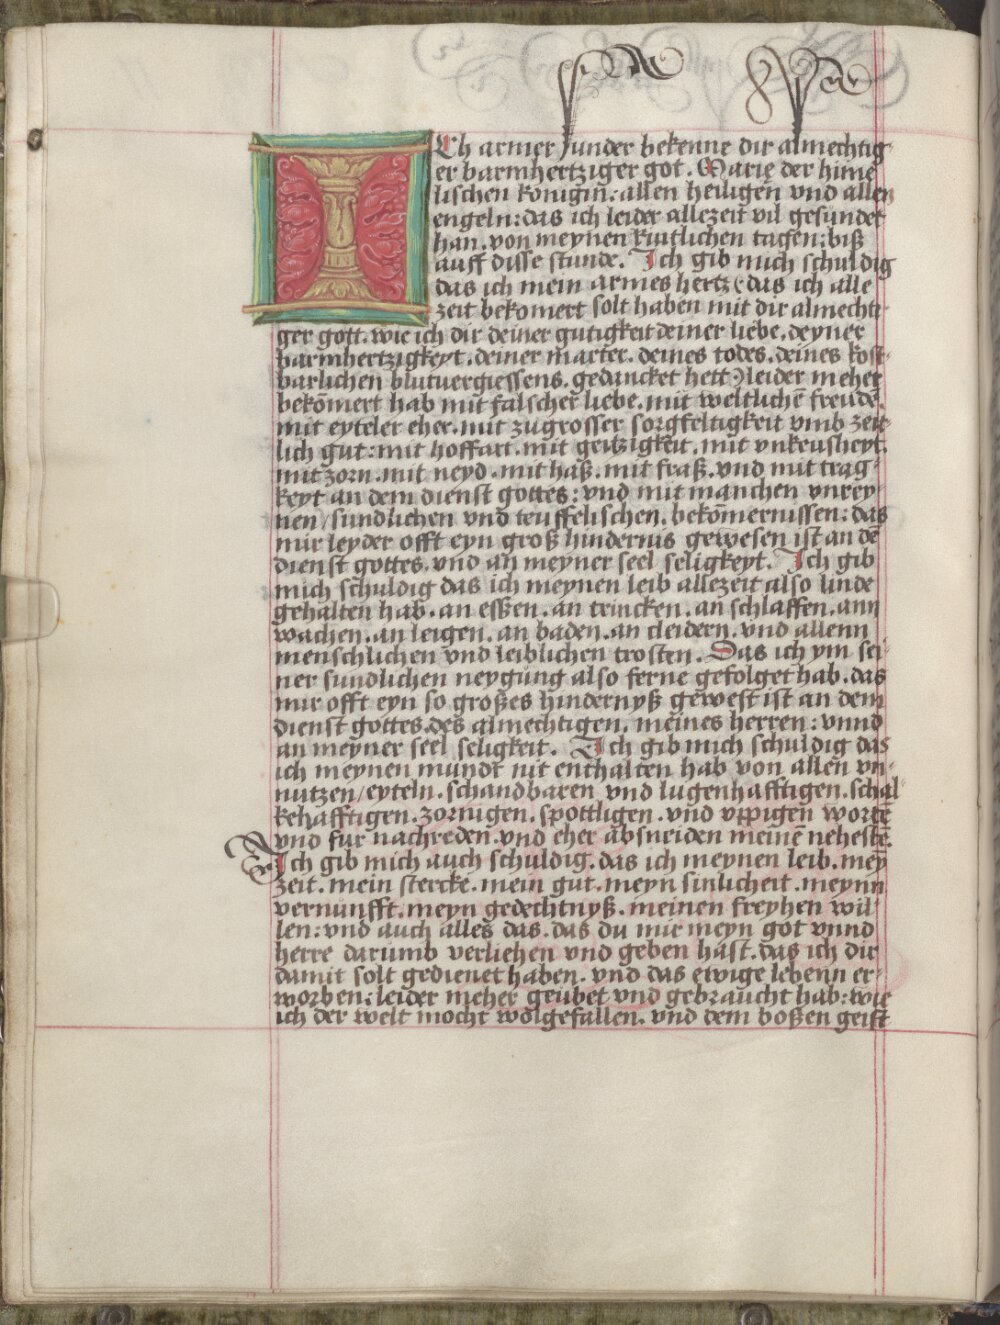 ICh armer sunder bekenne dir almechtig
er barmhertziger got. Marie der hime
lischen konigin̄: allen heiligen vnd allen
engeln: das ich leider allezeit vil gesundet
han. von meynen kintlichen tagen: biß
auff disse stunde. Ich gib mich schuldig
das ich mein armes hertz (das ich alle
zeit bekomert solt haben mit dir almechti
ger gott. wie ich dir deiner gutigkeit deiner liebe. deyner
barmhertzigkeyt. deiner marter. deines todes. deines kost-
barlichen blutuergiessens. gedancket hett) leider meher
bekōmert hab mit falscher liebe. mit weltlichē freude.
mit eyteler eher. mit zugrosser sorgfeltigkeit vmb zeit
lich gut: mit hoffart. mit geitzigkeit. mit vnkeusheyt.
mit zorn. mit neyd. mit haß. mit fraß. vnd mit trag-
keyt an dem dienst gottes: vnd mit manchen vnrey-
nen/ sundlichen vnd teuffelischen. bekōmernissen: das
mir leyder offt eyn groß hindernis gewesen ist an dē
dienst gottes. vnd an meyner seel seligkeyt. Ich gib
mich schuldig das ich meynen leib allezeit also linde
gehalten hab. an essen. an trincken. an schlaffen. ann
wachen. an leigen. an baden. an cleidern. vnd allenn
menschlichen vnd leiblichen trosten. Das ich ym sei-
ner sundlichen neygung also ferne gefolget hab. das
mir offt eyn so großes hindernyß gewest ist an dem
dienst gottes. des almechtigen. meines herren: vnnd
an meyner seel seligkeit. Ich gib mich schuldig das
ich meynen mundt nit enthalten hab von allen vn-
nutzen/ eyteln. schandbaren vnd lugenhafftigen. schal-
kehafftigen. zornigen. spottligen. vnd vppigen wortē
vnd fur nachreden. vnd eher absneiden meinē nehestē.
Ich gib mich auch schuldig. das ich meynen leib. mey
zeit. mein stercke. mein gut. meyn sinlicheit. meynn
vernunfft. meyn gedechtnyß. meinen freyhen wil-
len: vnd auch alles das. das du mir meyn got vnnd
herre darumb verliehen vnd geben hast. das ich dir
damit solt gedienet haben. vnd das ewige lebenn er-
worben: leider meher geubet vnd gebraucht hab: wie
ich der welt mocht wolgefallen. vnd dem boßen geist